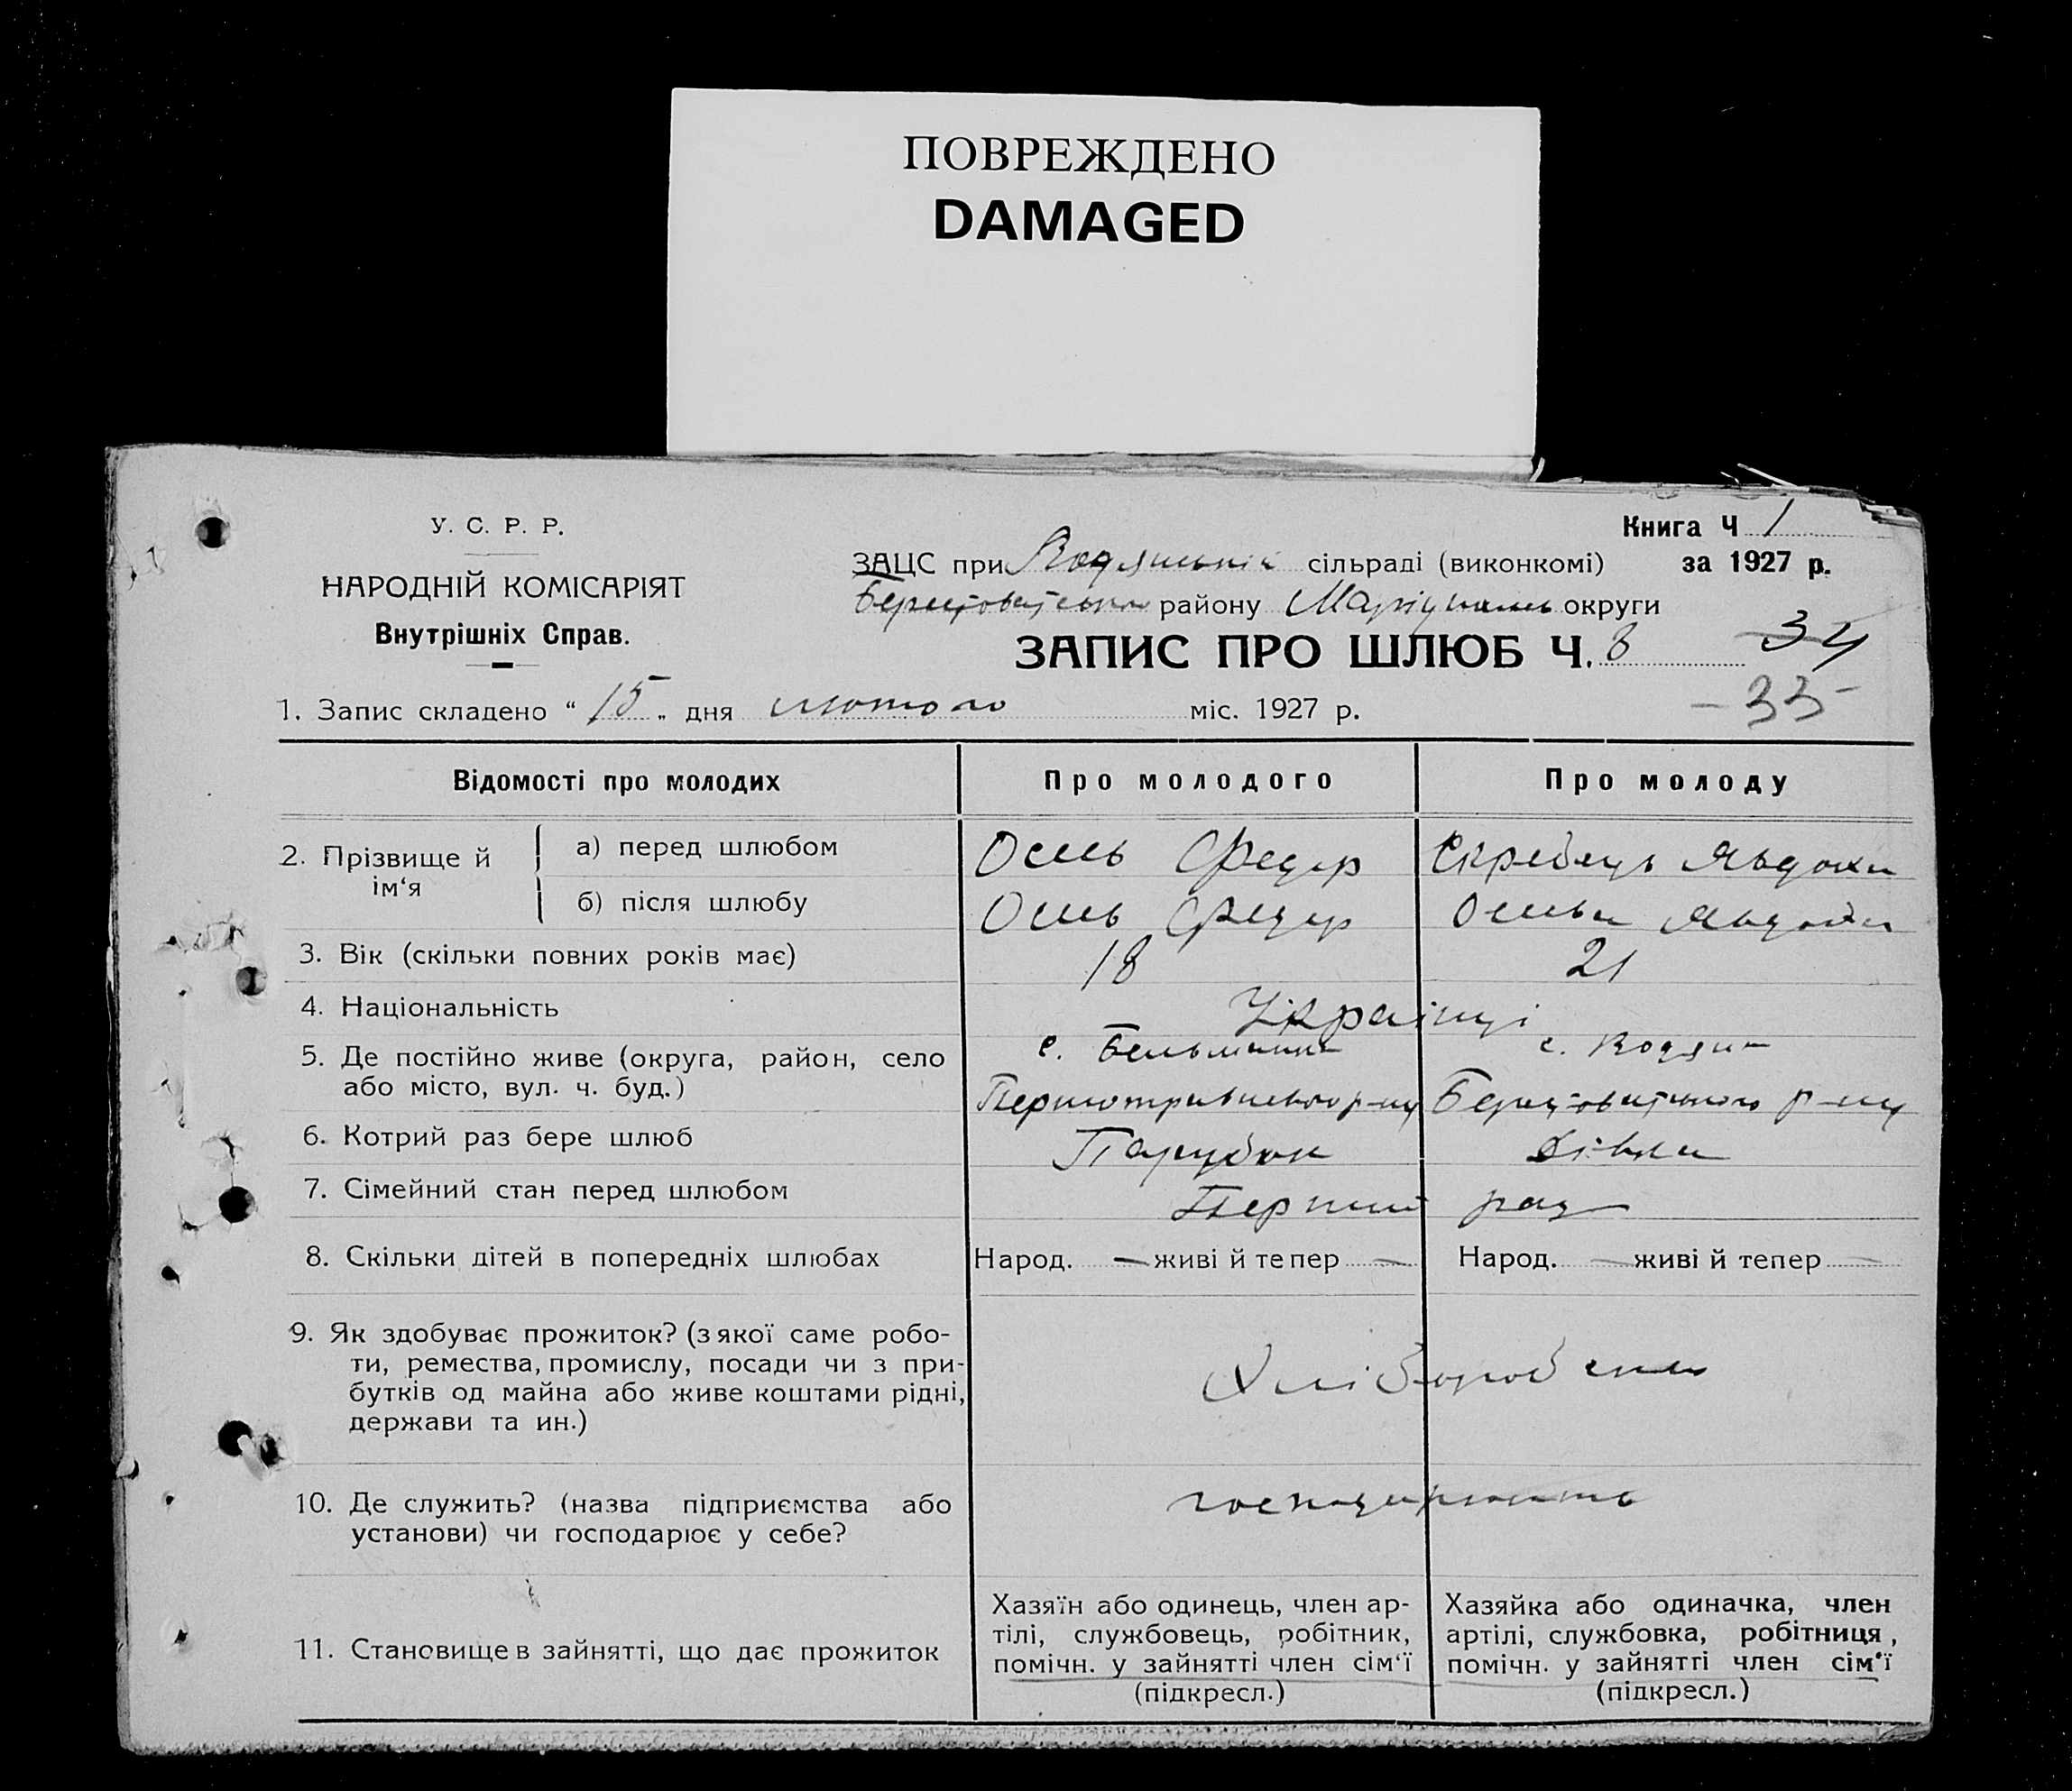 ПОВРЕЖДЕНО
DAMAGED
У. С. Р. Р.
НАРОДНІЙ КОМІСАРІЯТ
Внутрішніх Справ.
Книга Ч 1
за 1927 р.
ЗАЦС при Водянській сільраді (виконкомі)
району округи
ЗАПИС ПРО ШЛЮБ Ч. 8
34
- 33 -
1. Запис складено “ 15 „ дня лютого міс. 1927 р.
Відомості про молодих
Про молодого
Про молоду
2. Прізвище й ім‘я
а) перед шлюбом
Федір
Явдоха
б) після шлюбу
Федір
Явдоха
3. Вік (скільки повних років має)
18
21
4. Національність
Українці
5. Де постійно живе (округа, район, село
або місто, вул. ч. буд.)
с. Бельманка
с. Водяна
р-ну
р-ну
6. Котрий раз бере шлюб
Парубок
Дівка
7. Сімейний стан перед шлюбом
Перший раз
8. Скільки дітей в попередніх шлюбах
Народ. — живі й тепер —
Народ. — живі й тепер —
9. Як здобуває прожиток? (з якої саме робо-
ти, ремества, промислу, посади чи з при-
бутків од майна або живе коштами рідні,
держави та ин.)
10. Де служить? (назва підприємства або
установи) чи господарює у себе?
11. Становище в зайнятті, що дає прожиток
Хазяїн або одинець, член ар-
тілі, службовець, робітник,
помічн. у зайнятті член сім‘ї
(підкресл.)
Хазяйка або одиначка, член
артілі, службовка, робітниця,
помічн. у зайнятті член сім‘ї
(підкресл.)